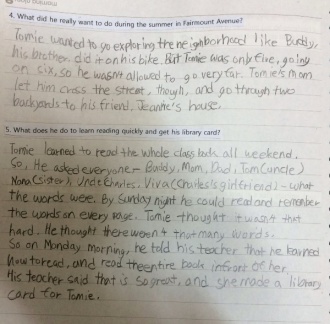 4. What did he really want to do during the summer in Fairmount Avenue?
Tomie wanted to go exploring the neighborhood like Buddy,
his brother did it on his bike. But Tomie was only five, going
on six, so he wasn't allowed to go very far. Tomie's mom
let him cross the street, though, and go through two
backyards to his friend. Jeannie's house.
5. What does he do to learn reading quickly and get his library card?
Tomie learned to read the whole class book all weekend.
So, He asked everyone - Buddy, Mom, Dad, Tom (uncle)
Nana (sister), Uncle Charles. Viva (Charles's girlfriend) - what
the words were. By Sunday night he could read and remember
the words on every page. Tomie thought it wasn't that
hard. He thought there weren't that many words.
So on Monday morning, he told his teacher that he learned
how to read, and read the entire book in front of her.
His teacher said that is so great, and she made a library
card for Tomie.